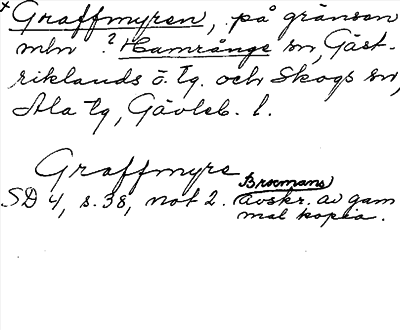 x Graffmyren, på gränsen
mln ? Hamrånge sn, Gäst-
riklands ö. tg. och Skogs sn,
Ala tg, Gävleb. l.
Graffmyre
Brocmans
SD 4, s. 38, not 2. avskr. av gam
mal kopia.